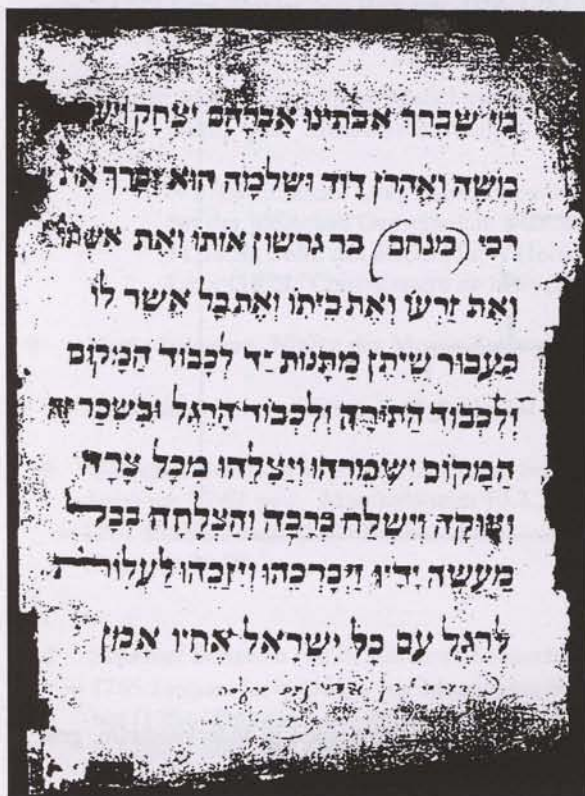 מי שֶׁבֵּרַךְ אֲבֹתֵינוּ אַבְרָהָם יִצְחָק
מֹשֶׁה וְאַהֲרֹן דָוִד וּשְׁלֹמֹה הוּא יְבָרֵךְ אֶת
רבי (מנחם) בר גרשון אוֹתוֹ וְאֶת אִשְׁתּוֹ
וְאֶת זַרְעוֹ וְאֶת בֵּיתוֹ וְאֶת כָּל אֲשֶׁר לוֹ
בַּעֲבוּר שֶׁיִתֵּן מַתְּנוֹת יַד לִכְבוֹד הַמָּקוֹם
וְלִכְבוֹד הַתּוֹרָה וְלִכְבוֹד הָרֶגֶל וּבִשְׂכַר זֶה
הַמָּקוֹם יִשְׁמְרֵהוּ וְיַצִּלֵהוּ מִכָּל צָרָה
וְצוּקָה וְיִשְׁלַח בְּרָכָה וְהַצְלָחָה בְּכָל
מַעֲשֵׂה יָדָיו וִיבָרְכֵהוּ וִיזַכֵּהוּ לַעֲלוֹת
לְרֶגֶל עִם כָּל יִשְׂרָאֵל אֶחָיו אָמֵן